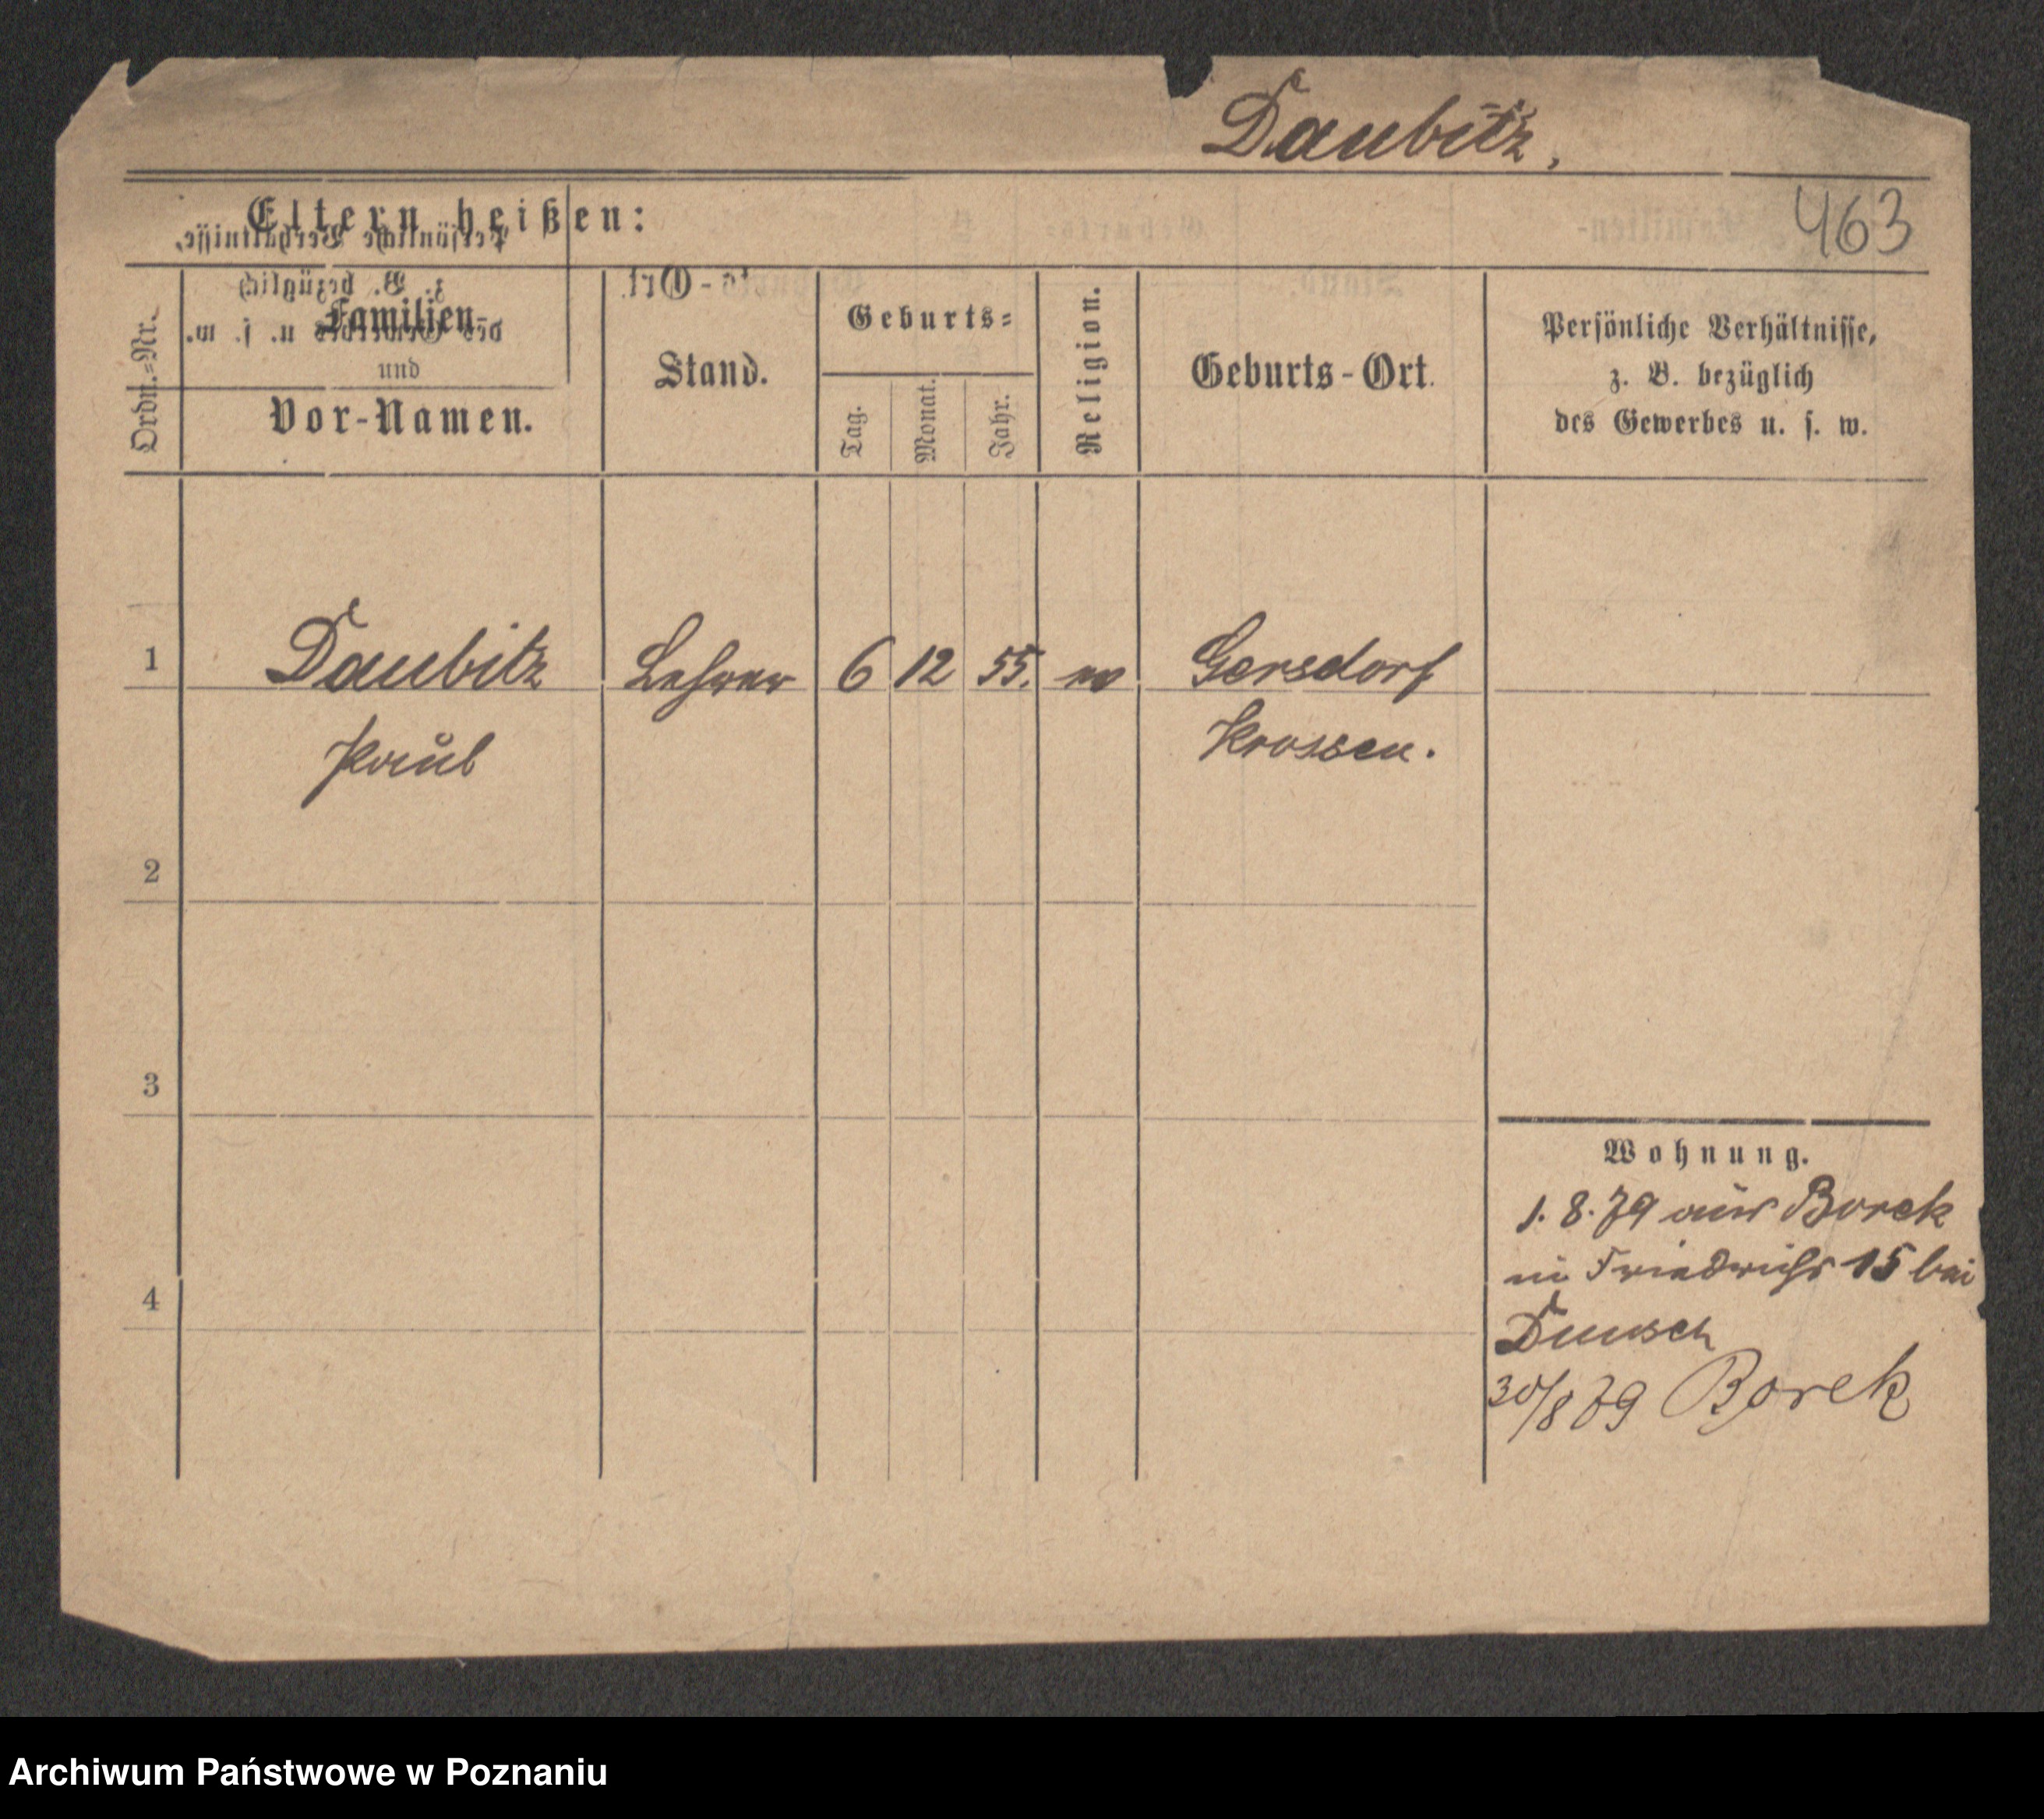 Daubitz,
463
Eltern heißen:
Ordn.=Nr.
Familien-
und
Vor-Namen.
Stand.
Geburts=
Tag.
Monat.
Jahr.
Religion.
Geburts-Ort.
Persönliche Verhältnisse,
z. B. bezüglich
des Gewerbes u. s. w.
1 Daubitz Lehrer 6 12 55. ev Gersdorf
Paul Krossen.
2
3
4
Wohnung.
1. 8. 79 aus Borek
in Friedrichs 15 bei
30/8 79 Borek
Archiwum Państwowe w Poznaniu